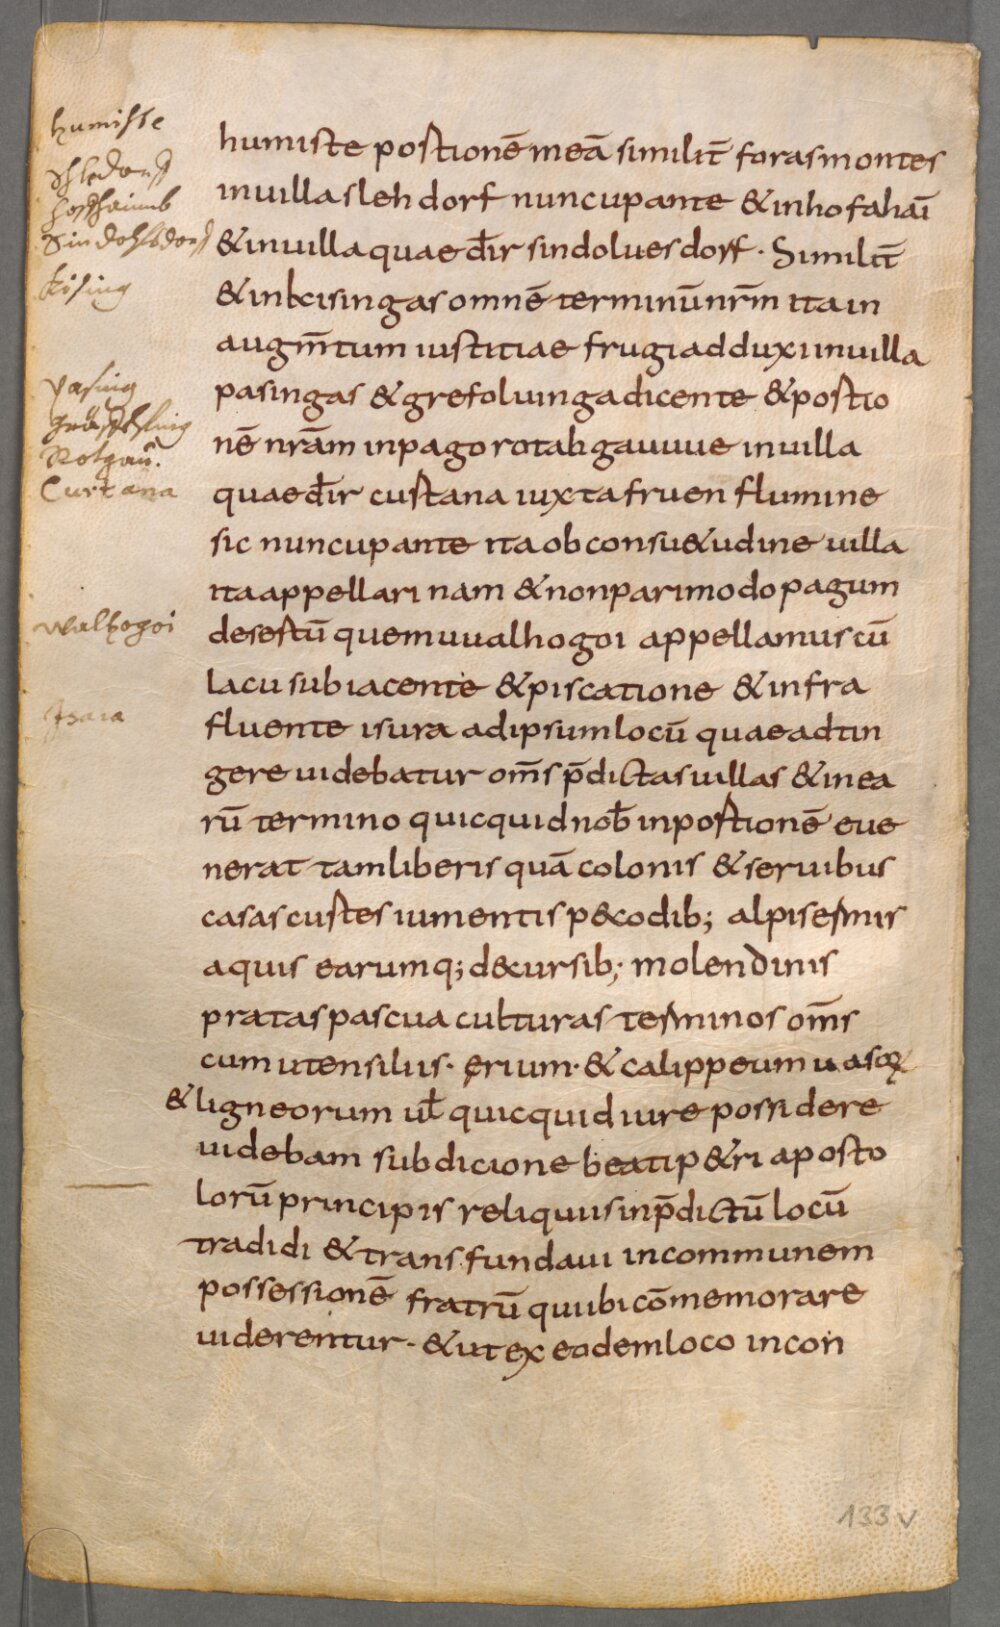 humiste
Schledorf
Hofhaimb
Sindohlsdorf
Kising
Pasing
Gräfelfing
Rotgau.
Curtana
Walhogoi
Isara
humiste postionē meā similit̄ foras montes
in uilla sleh dorf nuncupante & in hofahaī
& in uilla quae dīr sindoluesdorf. Similit̄
& in kisingas omnē terminū nr̄m ita in
augm̄tum iustitiae frugi adduxi in uilla
pasingas & grefoluinga dicente & postio
nē nr̄am in pago rotahgauuue in uilla
quae dīr custana iuxta fruen flumine
sic nuncupante ita ob consu&udine uilla
ita appellari nam & non pari modo pagum
desertū quem uualhogoi appellamus cū
lacu subiacente & piscatione & infra
fluente isura ad ipsum locū quae adtin
gere uidebatur om̄s p̄dictas uillas & in ea
rū termino quicquid nob̄ in postionē eue
nerat tam liberis quā colonis & seruibus
casas custes iumentis p&codib; alpis ermis
aquis earumq; d&cursib; molendinis
pratas pascua culturas terminos om̄s
cum utensiliis. erium. & calippeum uasoꝝ
& ligneorum ul̄ quicquid iure possidere
uidebam sub dicione beati p&ri aposto
lorū principis reliquiis in p̄dictū locū
tradidi & transfundaui in communem
possessionē fratrū qui ubi cōmemorare
uiderentur. & ut ex eodem loco in con
133 v